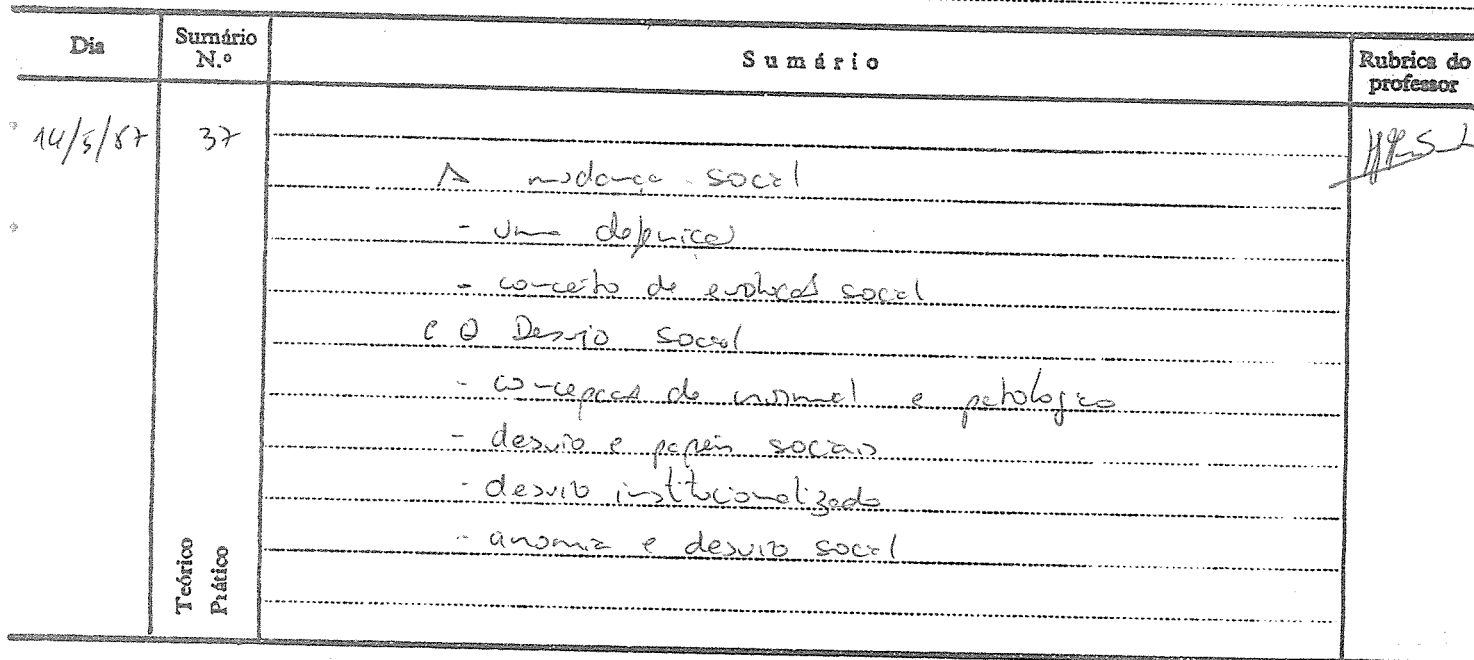 Dia Sumário N.º Sumário Rubrica do professor
14/5/87 37
A mudança social
- uma definição
- conceito de evolução social
e O Desvio social
- concepção de normal e patológico
- desvio e papéis sociais
- desvio institucionalizado
- anomia e desvio social
Teórico
Prático